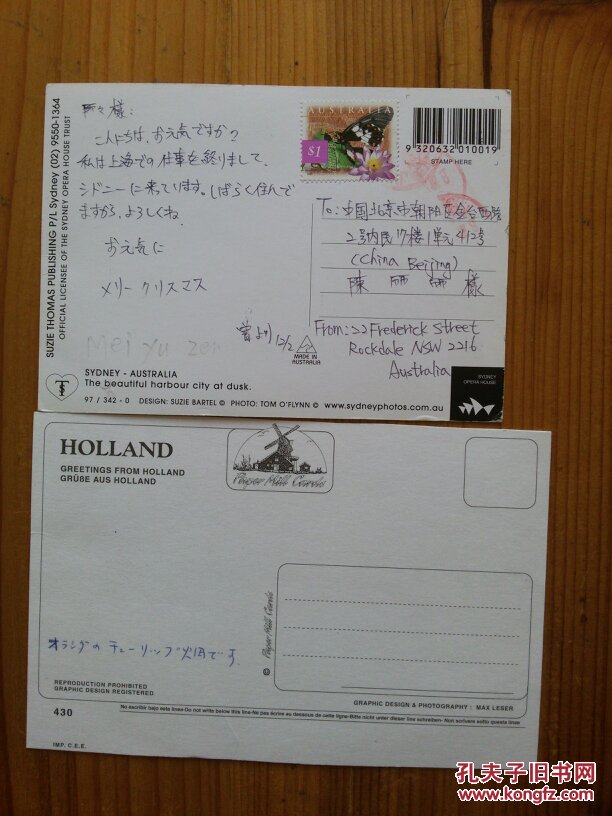 SUZIE THOMAS PUBLISHING P/L Sydney (02) 9550-1364
OFFICIAL LICENSEE OF THE SYDNEY OPERA HOUSE TRUST
様:
こんにちは、お元気ですか?
私は上海での仕事を終りまして、
シドニーに来ています。しばらく住んで
ますから、よろしくね
お元気に
メリー クリスマス
より 12/2
Mei yu zen
AUSTRALIA
$1
9 320632 010019
STAMP HERE
To: 中国北京市朝阳区金台西路
2号内民17楼1单元412号
(China Beijing)
陳 様
From: 22 Frederick Street
Rockdale NSW 2216
Australia
MADE IN
AUSTRALIA
SYDNEY - AUSTRALIA
The beautiful harbour city at dusk.
97 / 342 - 0 DESIGN: SUZIE BARTEL © PHOTO: TOM O'FLYNN © www.sydneyphotos.com.au
SYDNEY
OPERA HOUSE
HOLLAND
GREETINGS FROM HOLLAND
GRÜßE AUS HOLLAND
Paper Mill Cards
© Paper Mill Cards
オランダのチューリップ畑です
REPRODUCTION PROHIBITED
GRAPHIC DESIGN REGISTERED
GRAPHIC DESIGN & PHOTOGRAPHY : MAX LESER
430
No escribir bajo esta linea-Do not write below this line-Ne pas écrire au dessous de cette ligne-Bitte nicht unter dieser Linie schreiben- Non scrivere sotto questa linea
IMP. C.E.E.
孔夫子旧书网
www.kongfz.com